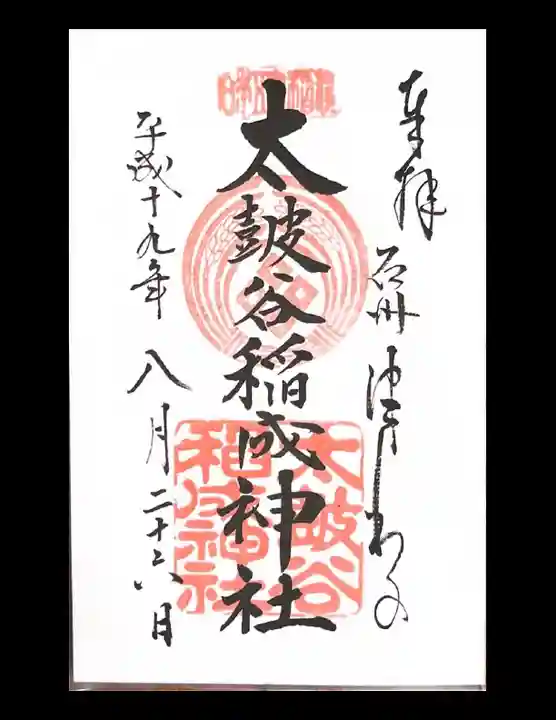 奉拝
石州 津わの
太皷谷稲成神社
太皷谷
稲成神社
平成十九年八月二十六日